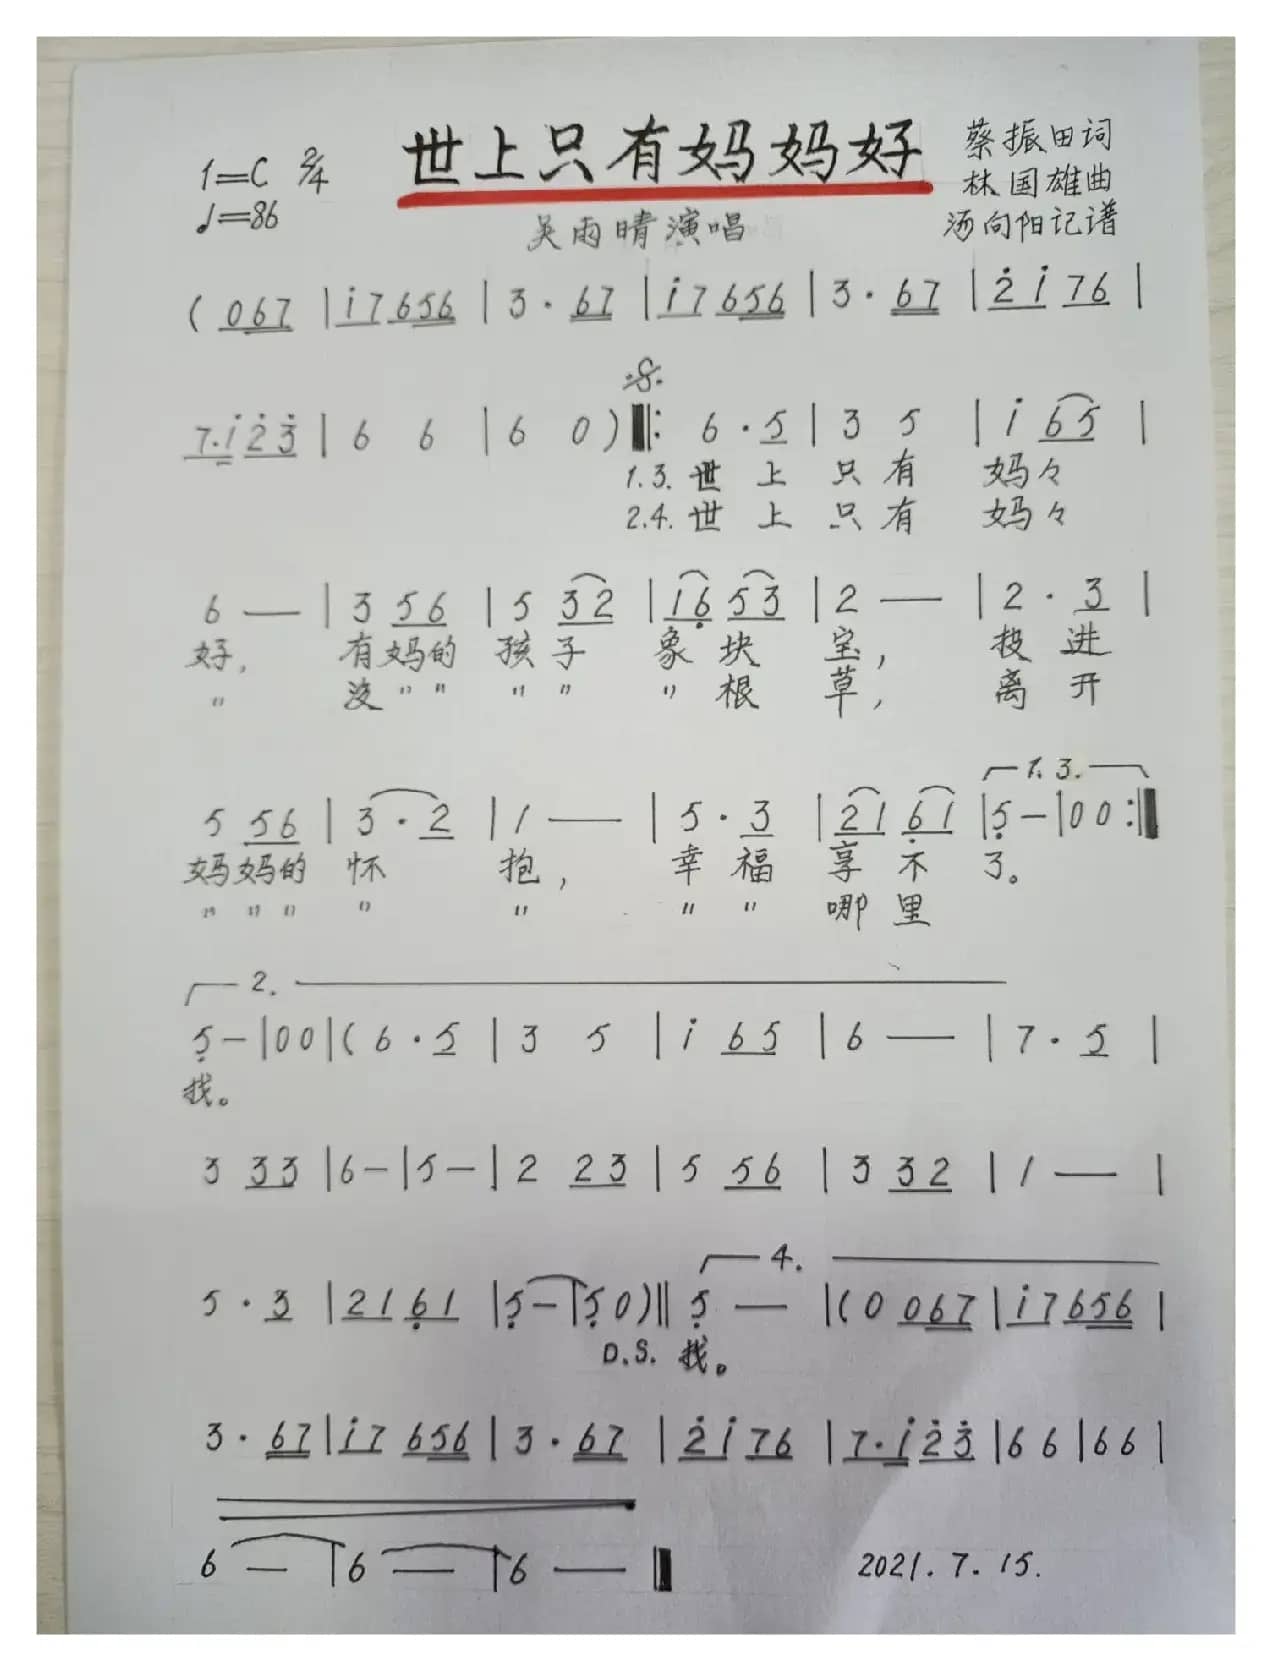 1=C 2/4 世上只有妈妈好 蔡振田词
♩=86 林国雄曲
吴雨晴演唱 汤向阳记谱
( 067 | i7656 | 3 · 67 | i7656 | 3 · 67 | 2̇ i 76 |
7·i 2̇3̇ | 6 6 | 6 0 ) ‖: 6 · 5 | 3 5 | i 65 |
1.3. 世上只有妈々
2.4. 世上只有妈々
6 — | 3 56 | 5 32 | 16̣ 53 | 2 — | 2 · 3 |
好, 有妈的孩子象块宝, 投进
〃 没〃〃〃〃〃根草, 离开
1. 3.
5 56 | 3 · 2 | 1 — | 5 · 3 | 21 6̣1 | 5̣ — | 0 0 :‖
妈妈的怀抱, 幸福享不了。
〃〃〃〃〃〃〃哪里
2.
5̣ — | 0 0 | ( 6 · 5 | 3 5 | i 65 | 6 — | 7 · 5 |
找。
3 33 | 6 — | 5 — | 2 23 | 5 56 | 3 32 | 1 — |
4.
5 · 3 | 21 6̣1 | 5̣ — | 5̣ 0 ) ‖ 5̣ — | ( 0 067 | i7656 |
D.S. 找。
3 · 67 | i7 656 | 3 · 67 | 2̇ i 76 | 7·i 2̇3̇ | 6 6 | 6 6 |
6 — | 6 — | 6 — ‖ 2021.7.15.